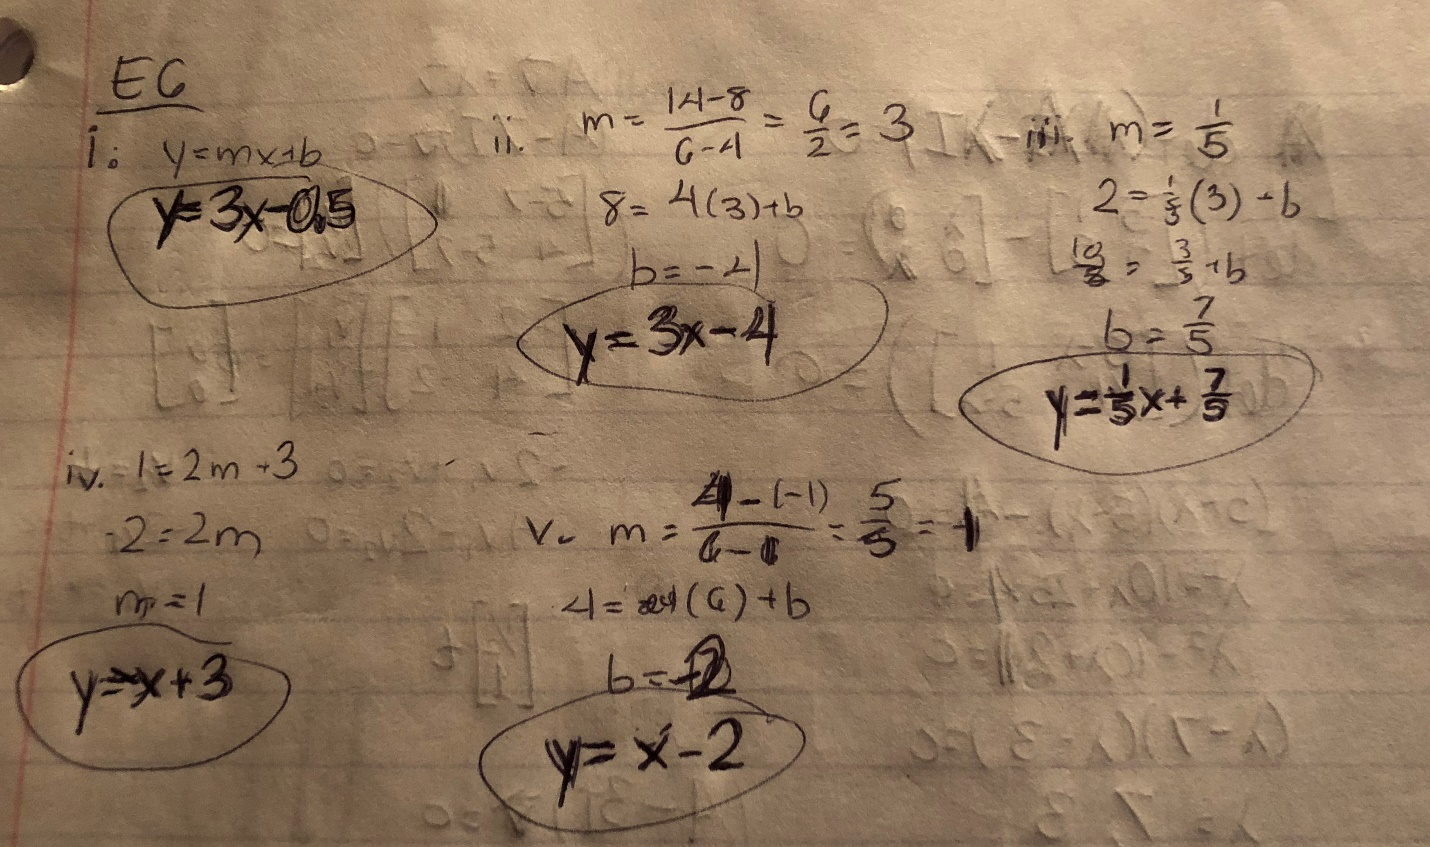 EC
i. y=mx+b
y=3x-0.5
ii. m = (14-8)/(6-4) = 6/2 = 3
8 = 4(3)+b
b = -4
y = 3x-4
iii. m = 1/5
2 = 1/5(3) + b
10/5 = 3/5 + b
b = 7/5
y = 1/5x + 7/5
iv. 1 = 2m + 3
-2 = 2m
m = 1
y=-x+3
v. m = (4-(-1))/(6-1) = 5/5 = 1
4 = (6)+b
b = -2
y = x-2